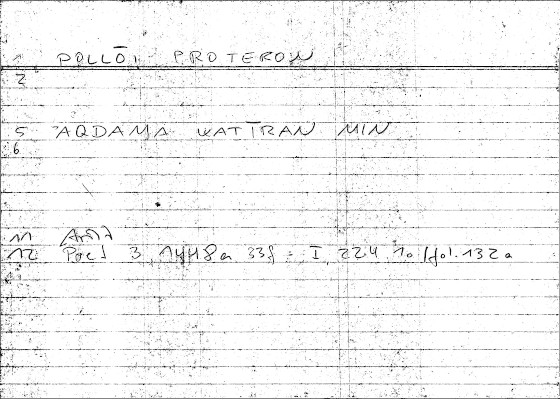 1 POLLŌI PROTERON
2
5 AQDAMA WATĪRAN MIN
6
11
12 Poet 3, 1448a 33f = I, 224, 10 / fol. 132a